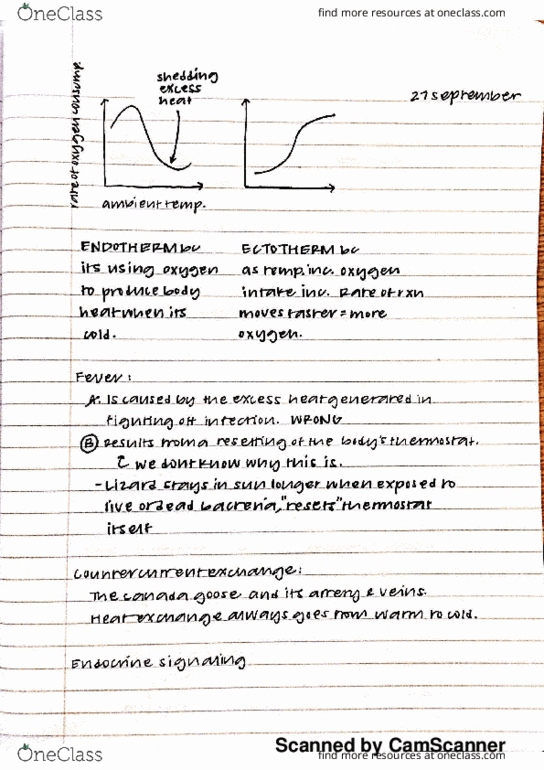 OneClass
find more resources at oneclass.com
27 september
rate of oxygen consump.
shedding
excess
heat
ambient temp.
ENDOTHERM bc
its using oxygen
to produce body
heat when its
cold.
ECTOTHERM bc
as temp. inc. oxygen
intake inc. Rate of rxn
moves faster = more
oxygen.
Fever:
A. Is caused by the excess heat generated in
fighting off infection. WRONG
B Results from a resetting of the body's thermostat.
we dont know why this is.
- Lizard stays in sun longer when exposed to
live or dead bacteria, "resets" thermostat
itself
Countercurrent exchange:
The canada goose and its artery & veins.
Heat exchange always goes from warm to cold.
Endocrine signaling
Scanned by CamScanner
OneClass
find more resources at oneclass.com